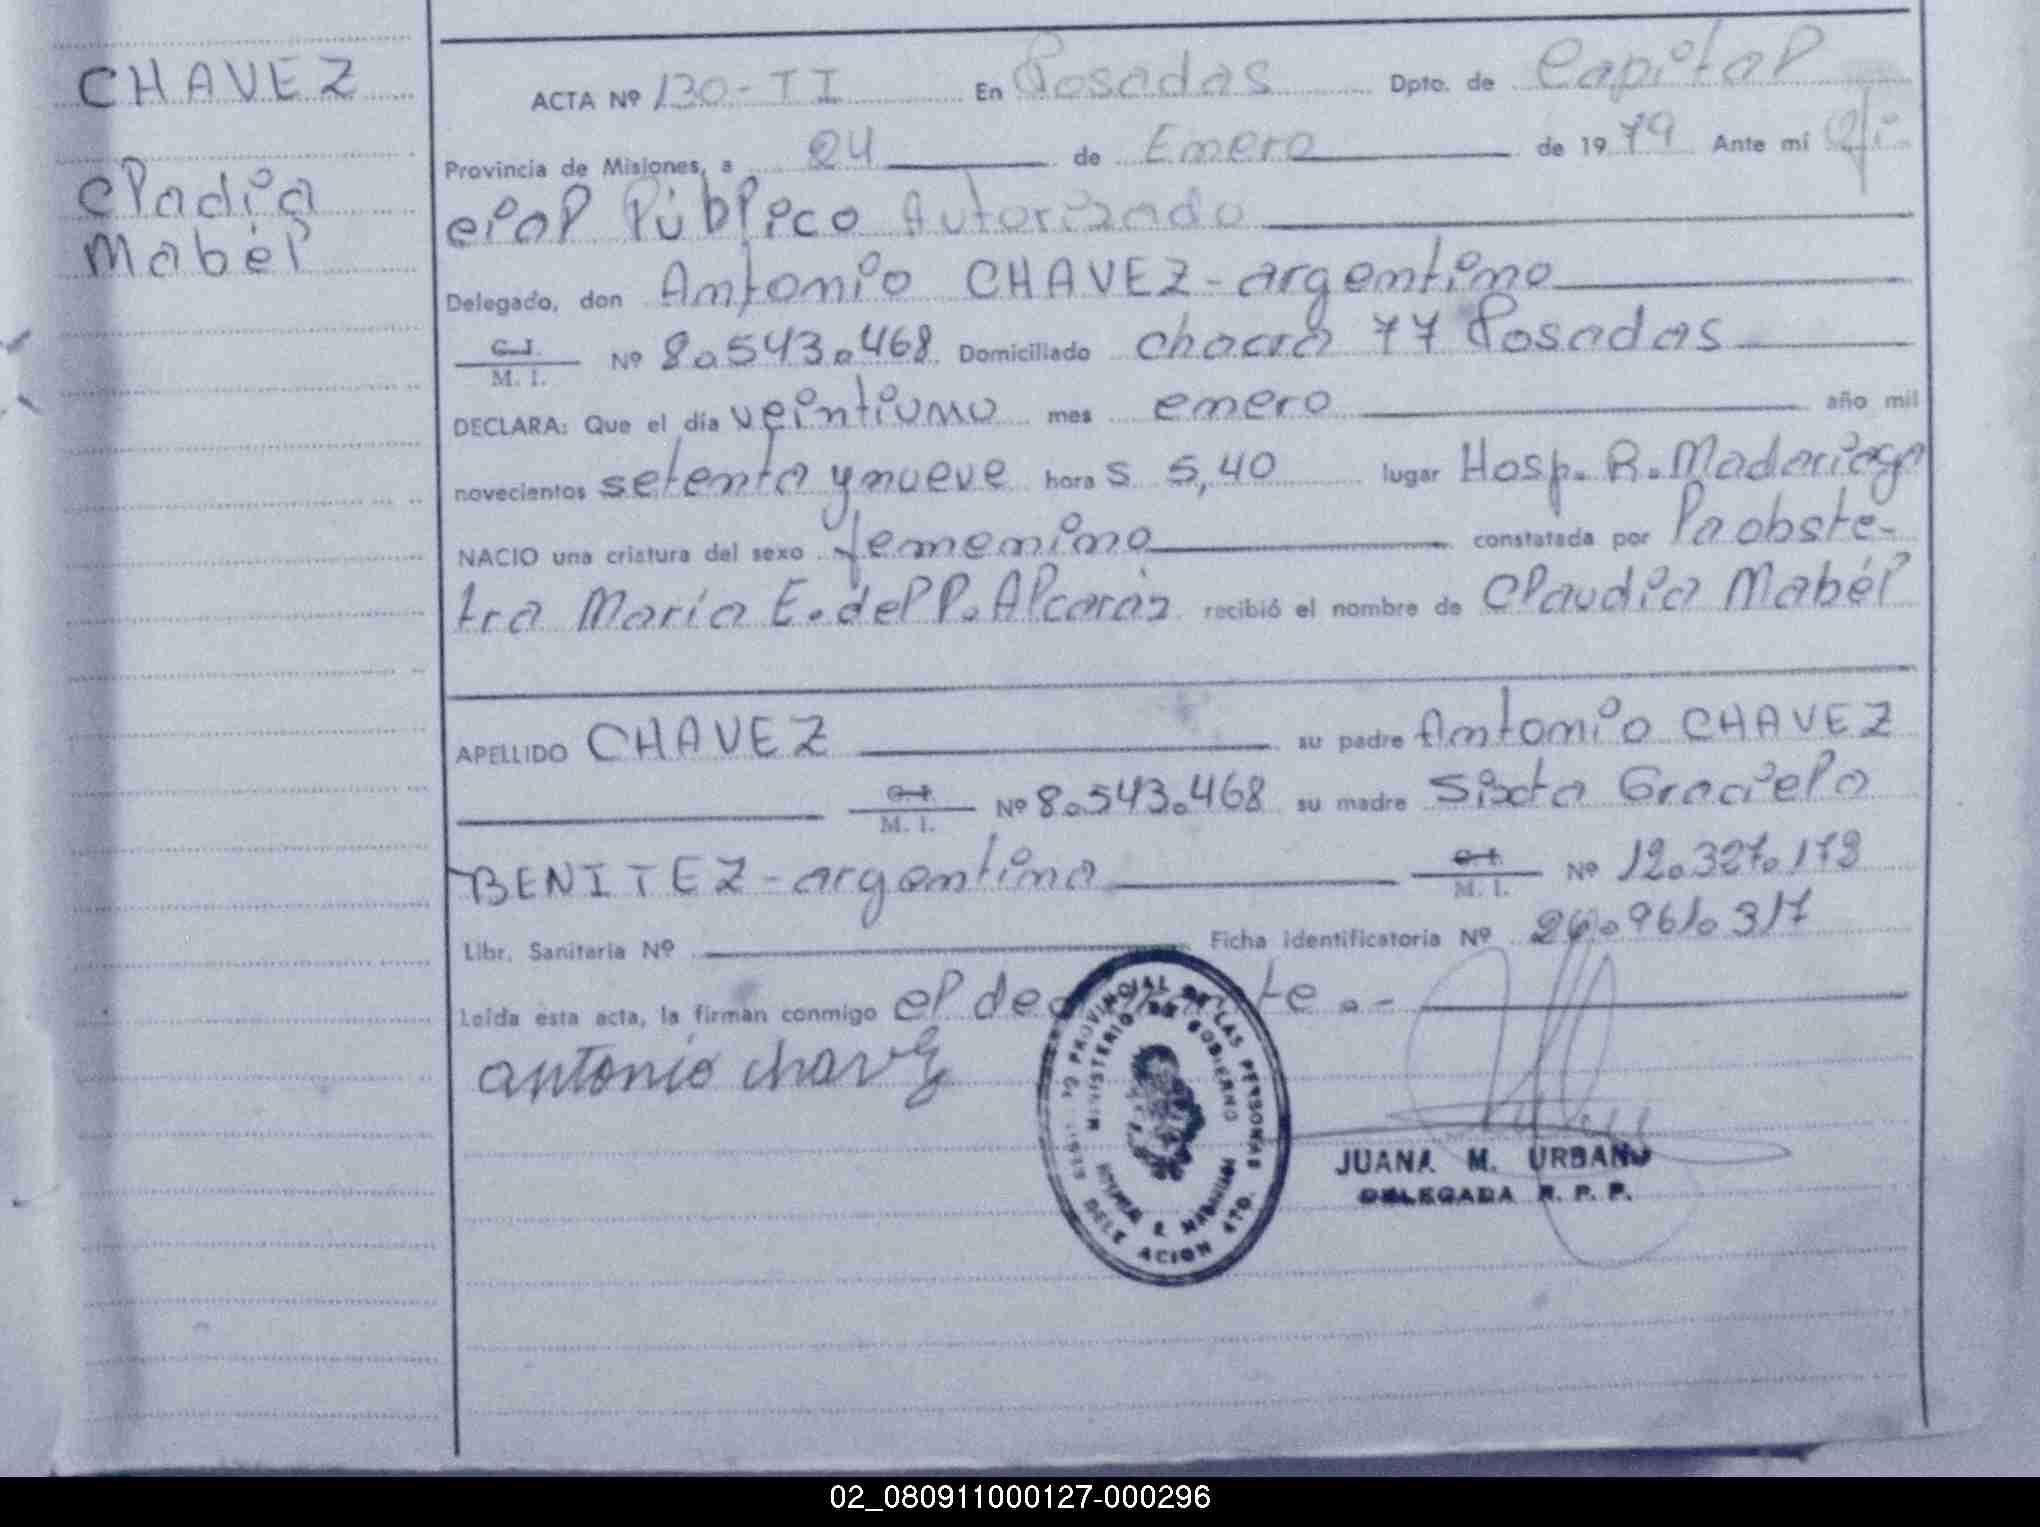 CHAVEZ
Cladia
Mabél
ACTA Nº 130-TI En Posadas Dpto. de Capital
Provincia de Misiones, a 24 de Enero de 1979 Ante mí Ofi-
cial Público Autorizado
Delegado, don Antonio CHAVEZ-argentino
C.I. M. I. Nº 8.543.468 Domiciliado chacra 77 Posadas
DECLARA: Que el día veintiuno mes enero año mil
novecientos setenta y nueve hora s 5,40 lugar Hosp. R. Madariaga
NACIO una criatura del sexo femenino constatada por La obste-
tra María E. del P. Alcaráz recibió el nombre de Claudia Mabél
APELLIDO CHAVEZ su padre Antonio CHAVEZ
C.I. M. I. Nº 8.543.468 su madre Sixta Graciela
BENITEZ-argentina C.I. M. I. Nº 12.327.173
Libr. Sanitaria Nº Ficha identificatoria Nº 26.961.317
Leída esta acta, la firman conmigo el declarante.-
antonio chavez
PROVINCIAL DE LAS PERSONAS
MINISTERIO DE GOBIERNO
DELEGACION 4TO.
JUANA M. URBANO
DELEGADA R. P. P.
02_080911000127-000296